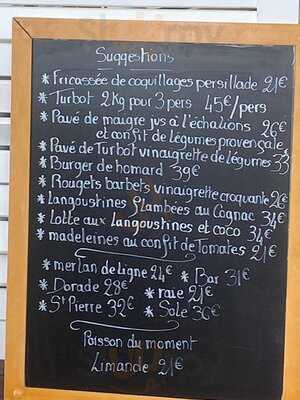 Suggestions
* Fricassée de coquillages persillade 21€
* Turbot 2kg pour 3 pers 45€/pers
* Pavé de maigre jus à l'échalions 26€
et confit de légumes provençale
* Pavé de Turbot vinaigrette de légumes 33
* Burger de homard 39€
* Rougets barbets vinaigrette croquante 26€
* Langoustines flambées au Cognac 34€
* Lotte aux Langoustines et coco 34€
* madeleines au confit de Tomates 21€
* merlan de ligne 24€ * Bar 31€
* Dorade 28€ * raie 21€
* St Pierre 32€ * Sole 36€
Poisson du moment
Limande 21€